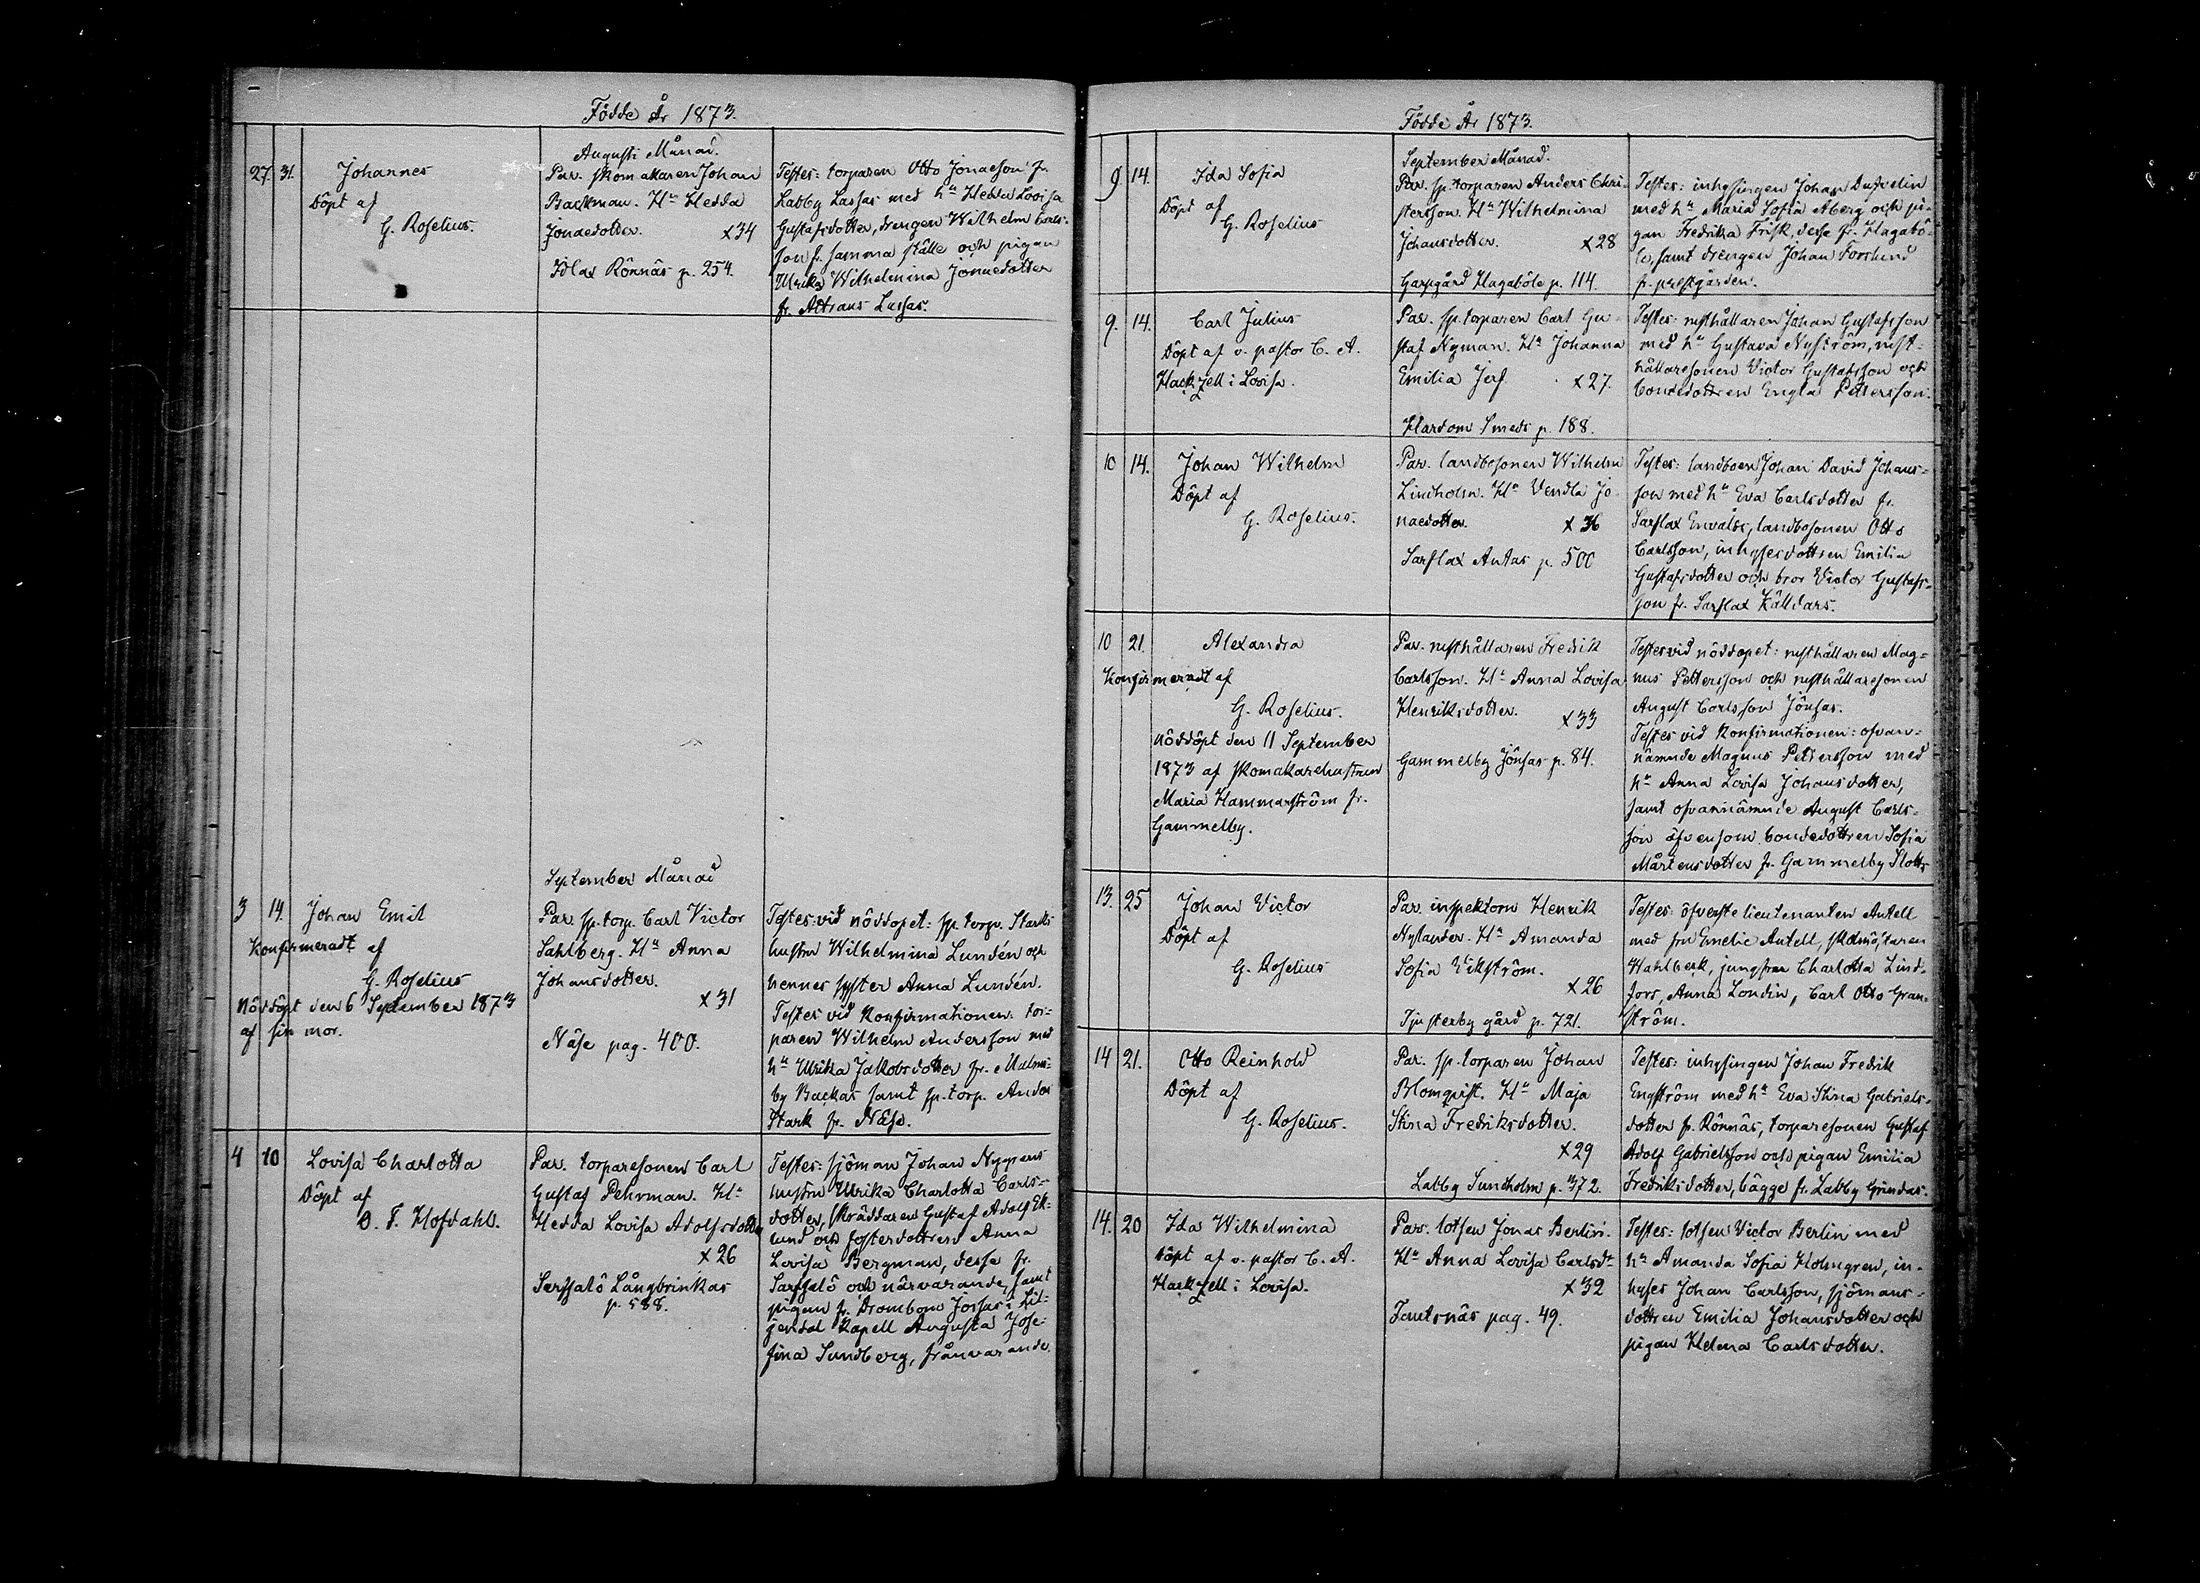 Födde År 1873.
Augusti Månad.
27. 31. Johannes
Döpt af
G. Roselius.
Par. skomakaren Johan
Backman. Hu Hedda
Jonaedotter. x34
Isnäs Rönnäs p. 254.
Testes: torparen Otto Jonaeson fr.
Labby Lassas med hu Hedda Lovisa
Gustafsdotter, drengen Wilhelm Carls-
son fr. samma ställe och pigan
Ulrika Wilhelmina Jonaedotter
fr. Lassas.
September Månad
3 14. Johan Emil
Konfirmeradt af
G. Roselius
Nöddöpt den 6 September 1873
af sin mor.
Par. sp. torp. Carl Victor
Sahlberg. Hu Anna
Johansdotter.
x31
Näse pag. 400.
Testes vid nöddopet: sp. torp. Starks
hustru Wilhelmina Lundén och
hennes syster Anna Lundén.
Testes vid konfirmationen: tor-
paren Wilhelm Andersson med
hu Ulrika Jakobsdotter fr. Malmi-
by Backas samt sp. torp. Anders
Stark fr. Näse.
4 10 Lovisa Charlotta
Döpt af
O. F. Hofdahl.
Par. torparesonen Carl
Gustaf Pehrman. Hu
Hedda Lovisa Adolfsdotter
x26
Sarfsalö Långbrinkas
p. 588.
Testes: sjöman Johan Nygrens
hustru Ulrika Charlotta Carls-
dotter, skräddaren Gustaf Adolf Ek-
lund och fosterdottren Anna
Lovisa Bergman, dessa fr.
Sarfsalö och närvarande, samt
pigan fr. Drombom Jossas i Lil-
jendal Kapell Augusta Jose-
fina Sundberg, frånvarande.
Födde År 1873.
September Månad.
9 14. Ida Sofia
Döpt af
G. Roselius
Par. sp. torparen Anders Chri-
stersson. Hu Wilhelmina
Johansdotter. x28
Garpgård Hagaböle p. 114.
Testes: inhysingen Johan
med hu Maria Sofia Åberg och pi-
gan Fredrika Frisk, dessa fr. Hagabö-
le, samt drengen Johan Forslund
fr. prestgården.
9. 14. Carl Julius
Döpt af v. pastor C. A.
Hackzell i Lovisa.
Par. sp. torparen Carl Gu-
staf Nyman. Hu Johanna
Emilia Jerf. x27.
Hardom Smeds p. 188.
Testes: rusthållaren Johan Gustafsson
med hu Gustava Nyström, rust-
hållaresonen Victor Gustafsson och
bondedottren Engla Pettersson.
10 14. Johan Wilhelm
Döpt af
G. Roselius.
Par. landbosonen Wilhelm
Lindholm. Hu Vendla Jo-
naedotter. x36
Sarflax Antas p. 500
Testes: landboen Johan David Johans-
son med hu Eva Carlsdotter fr.
Sarflax Envalds, landbosonen Otto
Carlsson, inhysesdottren Emilia
Gustafsdotter och bror Victor Gustafs-
son fr. Sarflax Källdars.
10 21. Alexandra
Konfirmeradt af
G. Roselius.
Nöddöpt den 11 September
1873 af skomakarehustrun
Maria Hammarström fr.
Gammelby.
Par. rusthållaren Fredrik
Carlsson. Hu Anna Lovisa
Henriksdotter. x33
Gammelby Jönsas p. 84.
Testes vid nöddopet: rusthållaren Mag-
nus Pettersson och rusthållaresonen
August Carlsson Jönsas.
Testes vid konfirmationen: ofvan-
nämnde Magnus Pettersson med
hu Anna Lovisa Johansdotter,
samt ofvannämnde August Carls-
son äfvensom bondedottren Sofia
Mårtensdotter fr. Gammelby Slotts
13. 25 Johan Victor
Döpt af
G. Roselius
Par. inspektorn Henrik
Nylander. Hu Amanda
Sofia Vikström.
x26
Tjusterby gård p. 721.
Testes: öfverstelieutenanten Antell
med fru Emelie Antell,
Wahlberk, jungfrur Charlotta Lind-
fors, Anna Londin, Carl Otto Gran-
ström.
14 21. Otto Reinhold
Döpt af
G. Roselius.
Par. sp. torparen Johan
Blomqvist. Hu Maja
Stina Fredriksdotter.
x29
Labby Sundholm p. 372.
Testes: inhysingen Johan Fredrik
Engström med hu Eva Stina Gabriels-
dotter fr. Rönnäs, torparesonen Gustaf
Adolf Gabrielsson och pigan Emilia
Fredriksdotter, bägge fr. Labby Grindas.
14. 20 Ida Wilhelmina
Döpt af v. pastor C. A.
Hackzell i Lovisa.
Par. lotsen Jonas Berlin.
Hu Anna Lovisa Carlsdr
x32
Tantsnäs pag. 49.
Testes: lotsen Victor Berlin med
hu Amanda Sofia Holmgren, in-
hyses Johan Carlsson, sjömans-
dottren Emilia Johansdotter och
pigan Helena Carlsdotter.